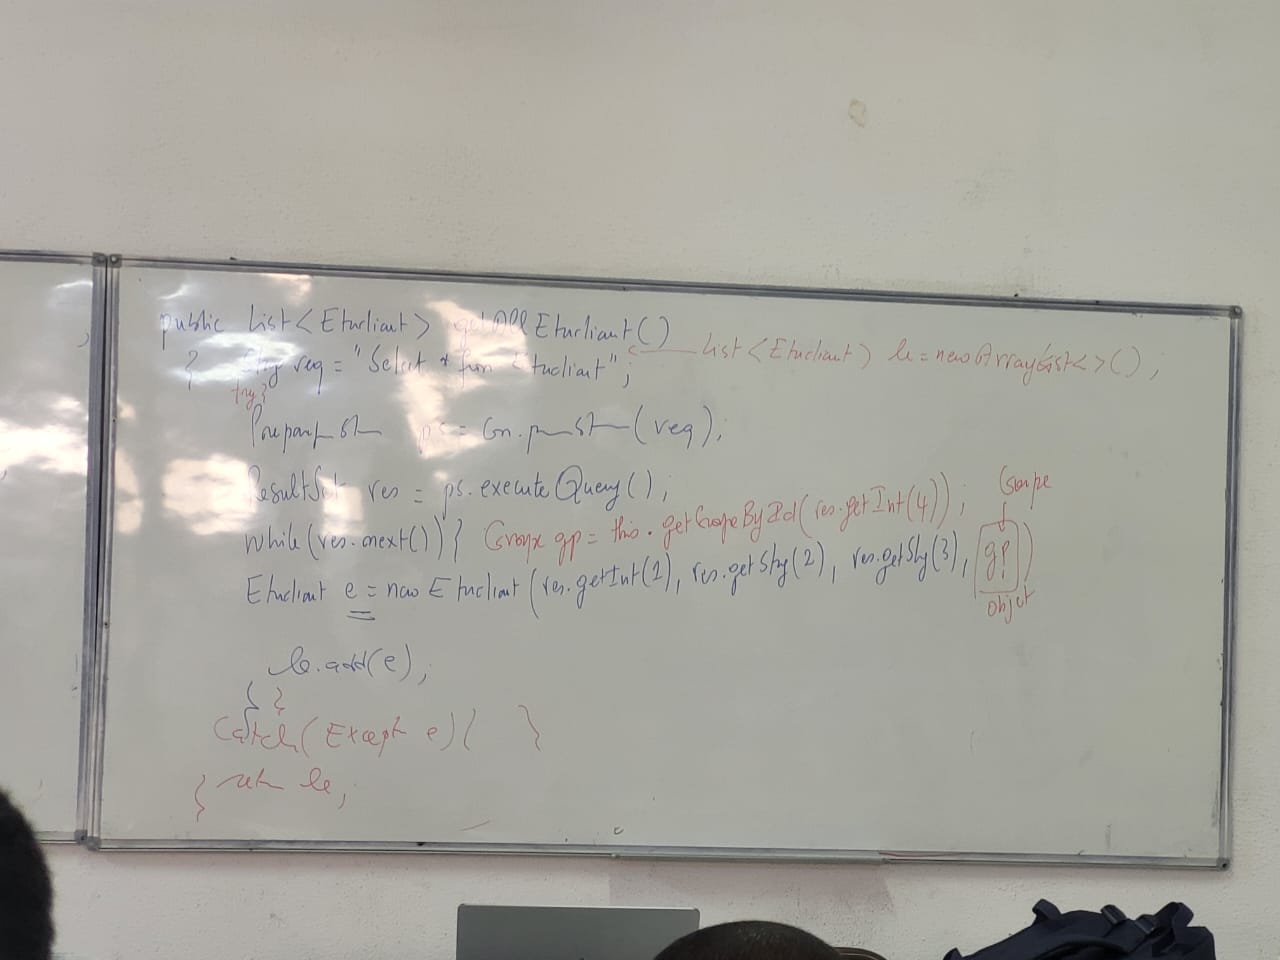 public List<Etudiant> getAllEtudiant()
{ req = "Select * from Etudiant"; List<Etudiant> le = new ArrayList<>();
try{
ps = Con. (req);
ResultSet res = ps.executeQuery();
while(res.next()){ Groupe gp = this.getGroupeById(res.getInt(4)); Groupe
Etudiant e = new Etudiant(res.getInt(1), res.getStrg(2), res.getStrg(3), gp)
objet
le.add(e);
} }
Catch(Except e){ }
} return le;